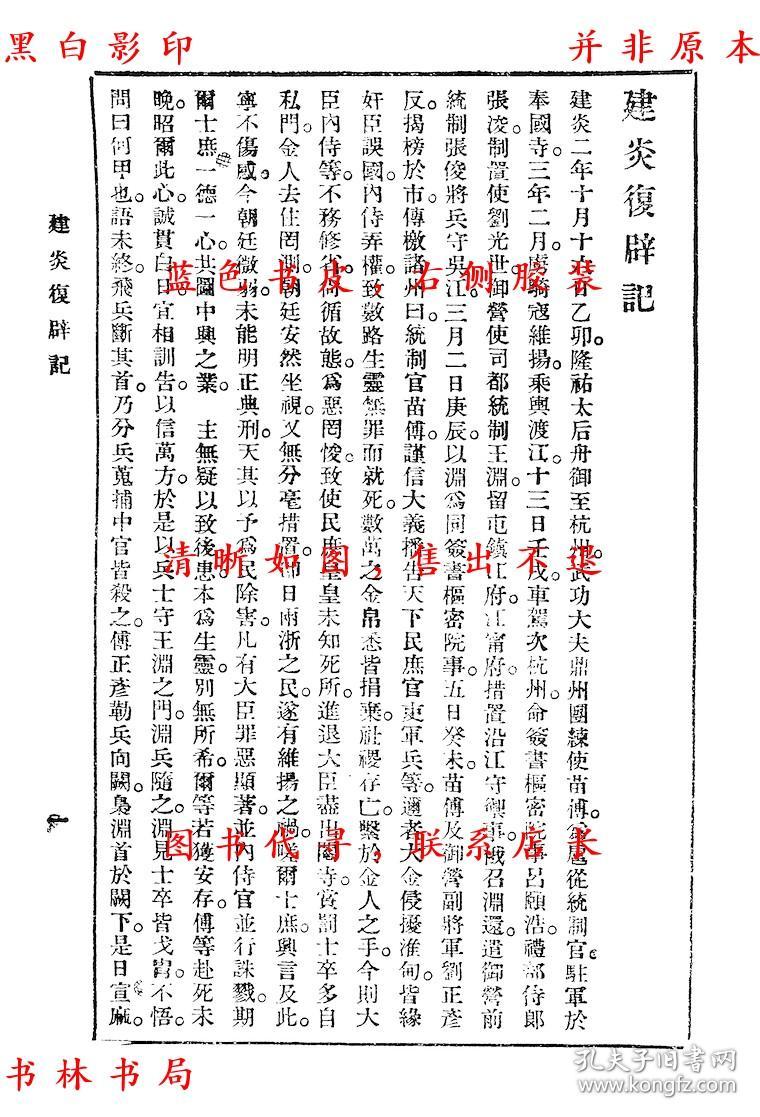 黑白影印
并非原本
建炎復辟記
建炎二年十月十日乙卯。隆祐太后舟御至杭州。武功大夫鼎州團練使苗傅。扈從統制官。駐軍於
奉國寺。三年二月。騎寇維揚。乘輿渡江。十三日壬戌。車駕次杭州。命簽書樞密院事呂頤浩。禮部侍郎
張浚。制置使劉光世。御營使司都統制王淵。留屯鎮江府。江甯府。措置沿江守禦事。俄召淵還。遣御營前
統制張俊將兵守吳江。三月二日庚辰。以淵爲同簽書樞密院事。五日癸未。苗傅及御營副將軍劉正彥
反。揭榜於市。傳檄諸州。曰。統制官苗傅。謹信大義。播告天下民庶官吏軍兵等。邇者大金侵擾淮甸。皆緣
奸臣誤國。內侍弄權。致數路生靈無罪而就死。數萬之金帛悉皆捐棄。社稷存亡。繫於金人之手。今則大
臣內侍等。不務修省。尚循故態。爲惡罔悛。致使民庶皇皇未知死所。進退大臣盡出閹寺。賞罰士卒多自
私門。金人去住罔測。朝廷安然坐視。又無分毫措置。卽日兩浙之民。遂有維揚之禍。嗟爾士庶。興言及此。
寧不傷感。今朝廷微弱。未能明正典刑。天其以予爲民除害。凡有大臣罪惡顯著。並內侍官並行誅戮。期
爾士庶。一德一心。共圖中興之業。 主無疑以致後患。本爲生靈。別無所希。爾等若獲安存。傅等赴死未
晚。昭爾此心。誠貫白日。宜相訓告。以信萬方。於是以兵士守王淵之門。淵兵隨之。淵見士卒皆戈冑。不悟。
問曰何甲也。語未終。飛兵斷其首。乃分兵蒐捕中官皆殺之。傅正彥勒兵向闕。梟淵首於闕下。是日宣麻。
建炎復辟記
一
蓝色书皮，右侧胶装
清晰如图，售出不退
图书代寻，联系店长
书林书局
孔夫子旧书网
www.kongfz.com